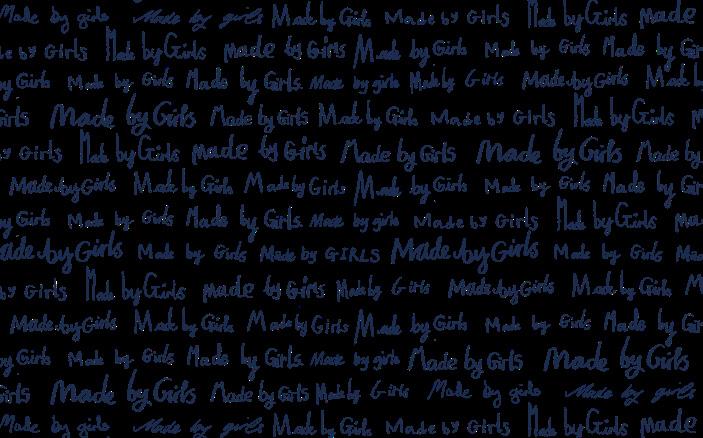 Made by girls Made by girls Made by Girls Made by Girls Made by Girls made
de by Girls Made by Girls made by Girls Made by Girls Made by Girls Made by Gir
by Girls Made by Girls Made by Girls. Made by girls Made by Girls Made by Girls Made by
irls Made by Girls Made by Girls Made by Girls Made by Girls Made by Girls m
by Girls Made by Girls made by Girls Made by Girls Made by Girls Made by
Made by Girls Made by Girls Made by Girls Made by Girls Made by Girls Made by Gir
by Girls Made by Girls Made by Girls. Made by girls Made by Girls Made by Girls ma
Made by Girls Made by Girls Made by GIRLS Made by Girls Made by Girls Mad
by Girls Made by Girls made by Girls Made by Girls Made by Girls Made by Girls M
Made by Girls Made by Girls Made by Girls Made by Girls Made by Girls Made by Gir
by Girls Made by Girls Made by Girls. Made by girls Made by Girls Made by Girls
irls Made by Girls Made by Girls Made by Girls Made by girls Made by girls
Made by girls Made by girls Made by Girls Made by Girls Made by Girls made